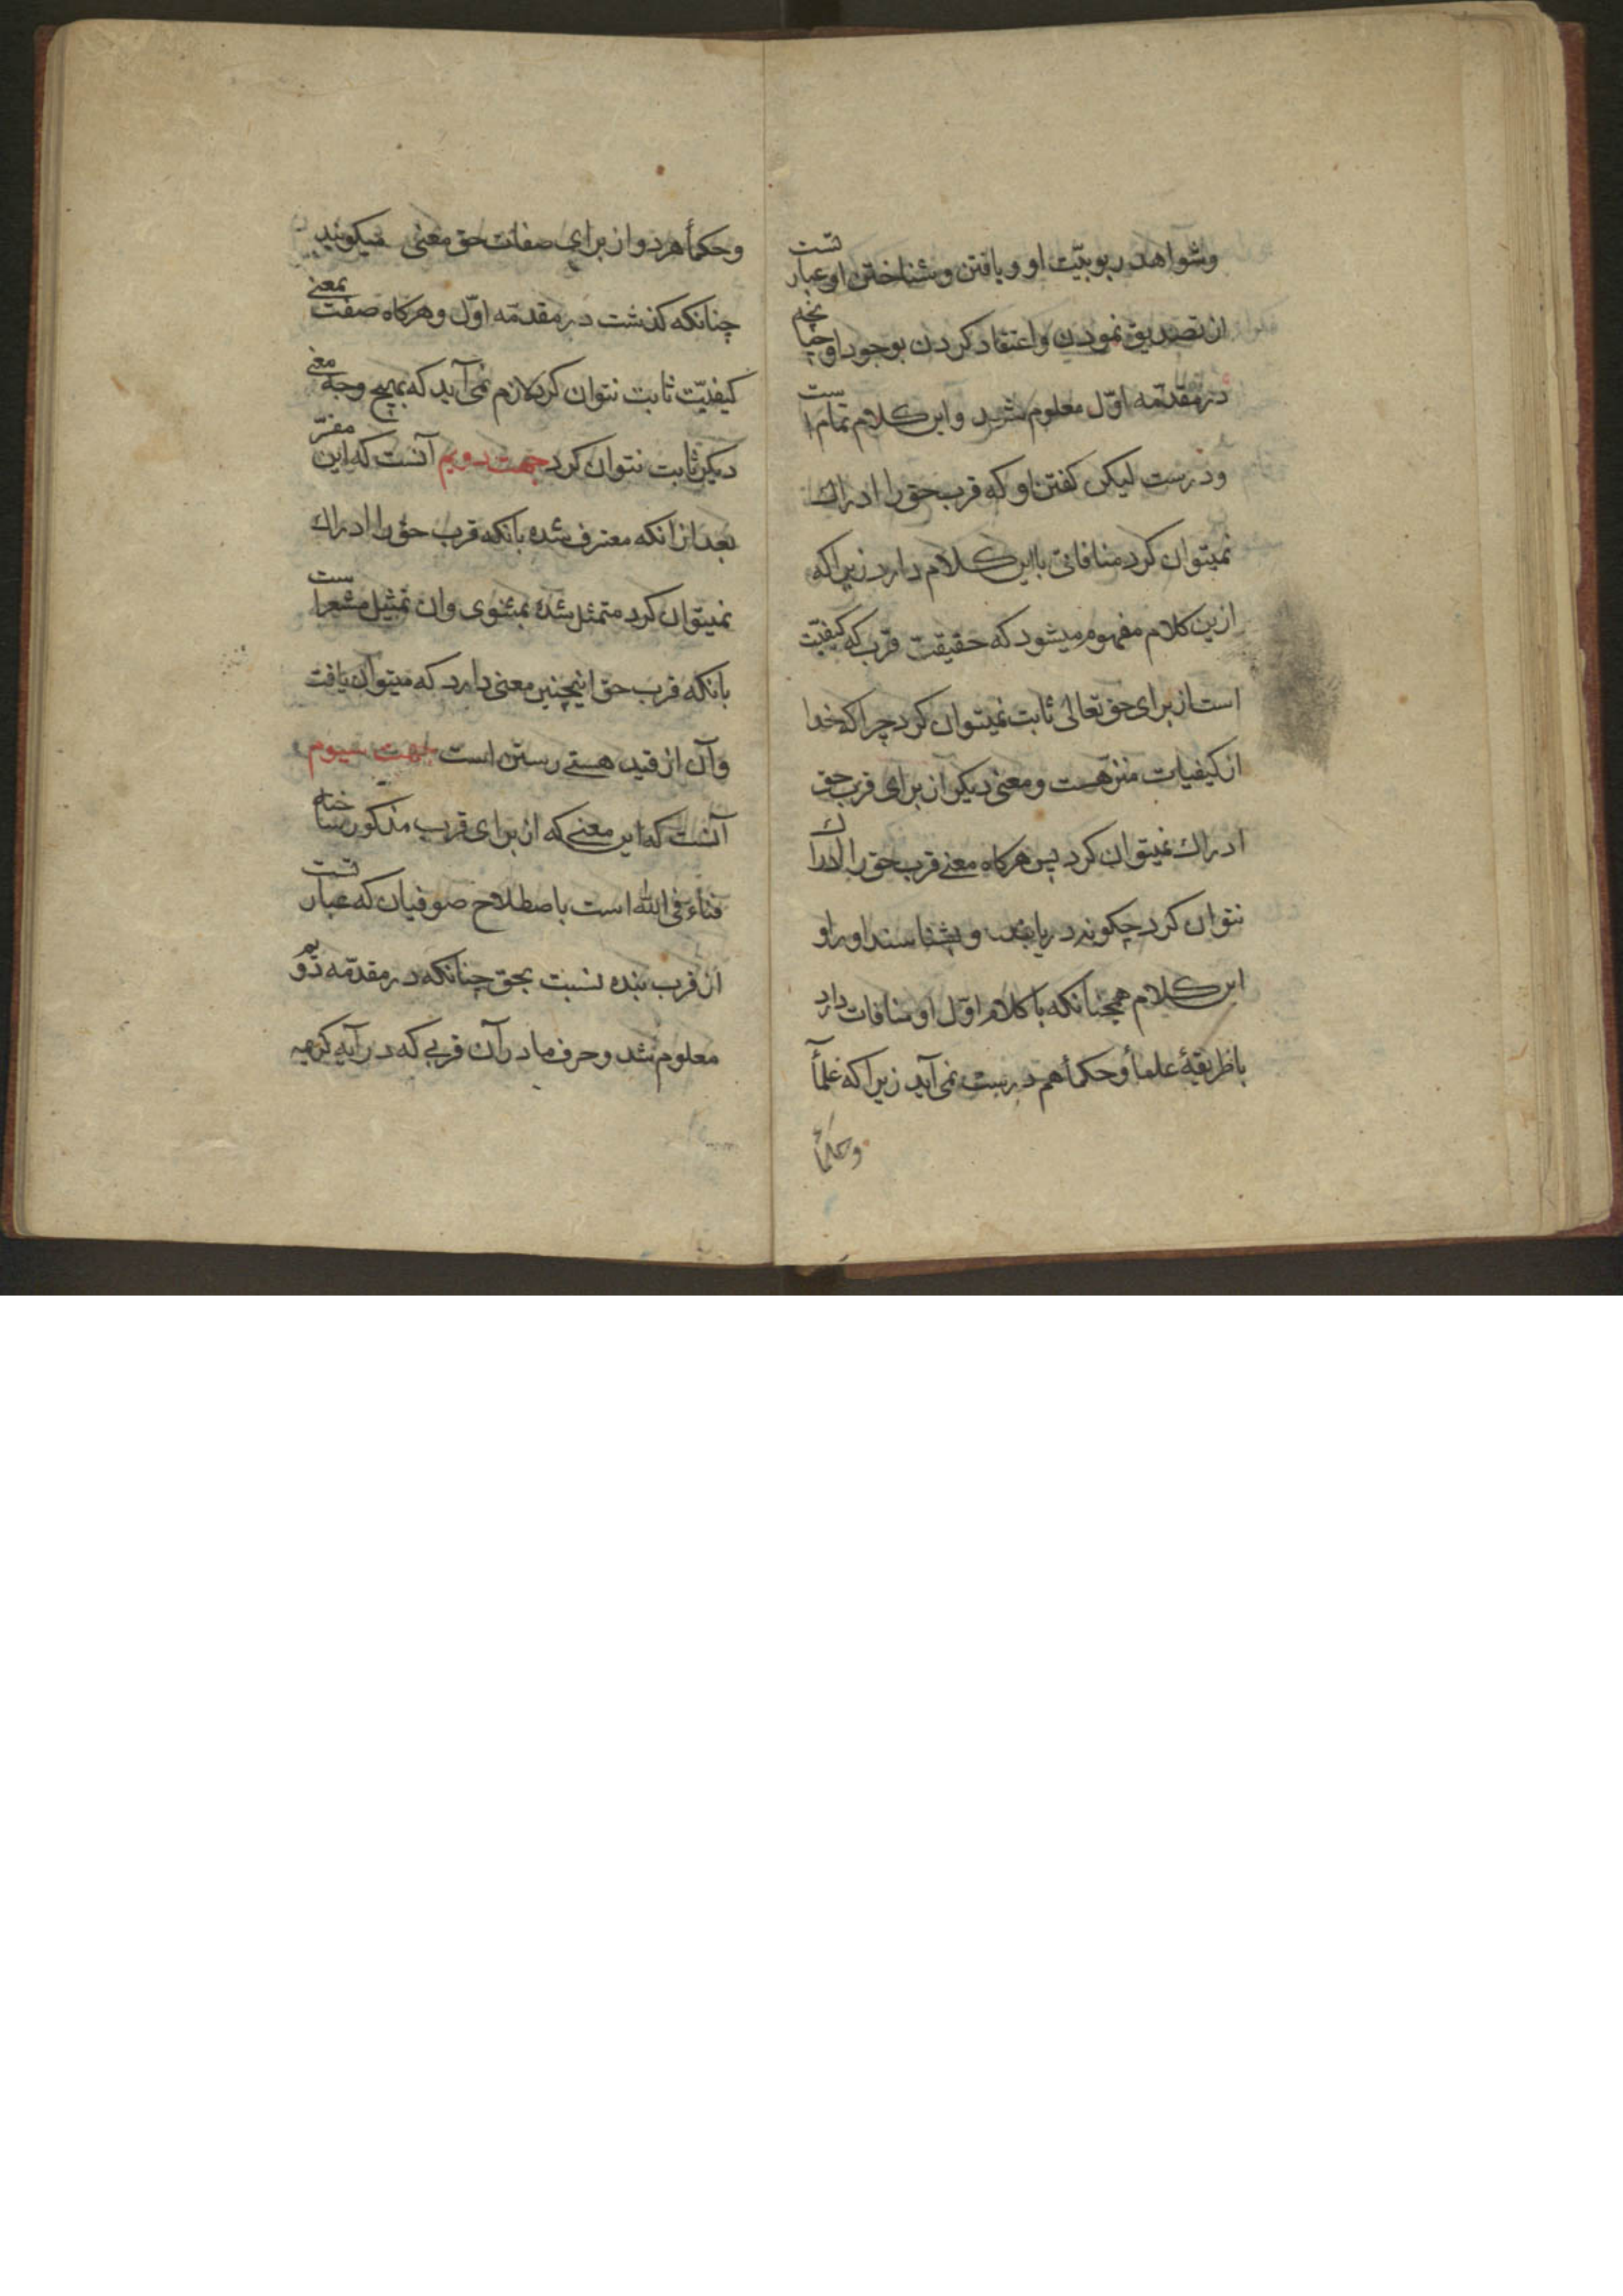 وشواهد ربوبیّت او و یافتن و شناختن او عبارتست
از تصدیق نمودن و اعتقاد کردن بوجود او چنانچه
در مقدّمه اوّل معلوم شد و این کلام تمام است
و درست لیکن کفتن او که قرب حق را ادراک
نمیتوان کرد منافاتی با این کلام دارد زیرا که
ازین کلام مفهوم میشود که حقیقت قرب که کیفیّت
است از برای حق تعالی ثابت نمیتوان کرد چرا که خدا
از کیفیات منزّهست و معنی دیکر از برای قرب حق
ادراک نمیتوان کرد پس هرکاه معنی قرب حق را ادراک
نتوان کرد چکونه دریابند و بشناسند او را و
این کلام همچنانکه با کلام اوّل او منافات دارد
با طریقهٔ علمأ و حکمأ هم درست نمی‌آید زیرا که علمأ
وحکمأ
وحکمأ هر دو از برای صفات حق معنی میکویند
چنانکه کذشت در مقدّمه اوّل و هرکاه صفت بمعنی
کیفیّت ثابت نتوان کرد لازم نمی‌آید که بهیچ وجه معنی
دیکر ثابت نتوان کرد جهت دویم آنست که این مفسّر
بعد از انکه معترف شده بانکه قرب حق را ادراک
نمیتوان کرد متمثل شده بمثنوی و ان تمثیل مشعر است
بانکه قرب حق اینچنین معنی دارد که میتوان یافت
و آن از قید هستی رستن است جهت سیوم
آنست که این معنی که از برای قرب مذکور ساخته
فنأء فی الله است باصطلاح صوفیان که عبارتست
از قرب بنده نسبت بحق چنانکه در مقدّمه دویم
معلوم شد و حرف ما در آن قربی که در آیه کریمه